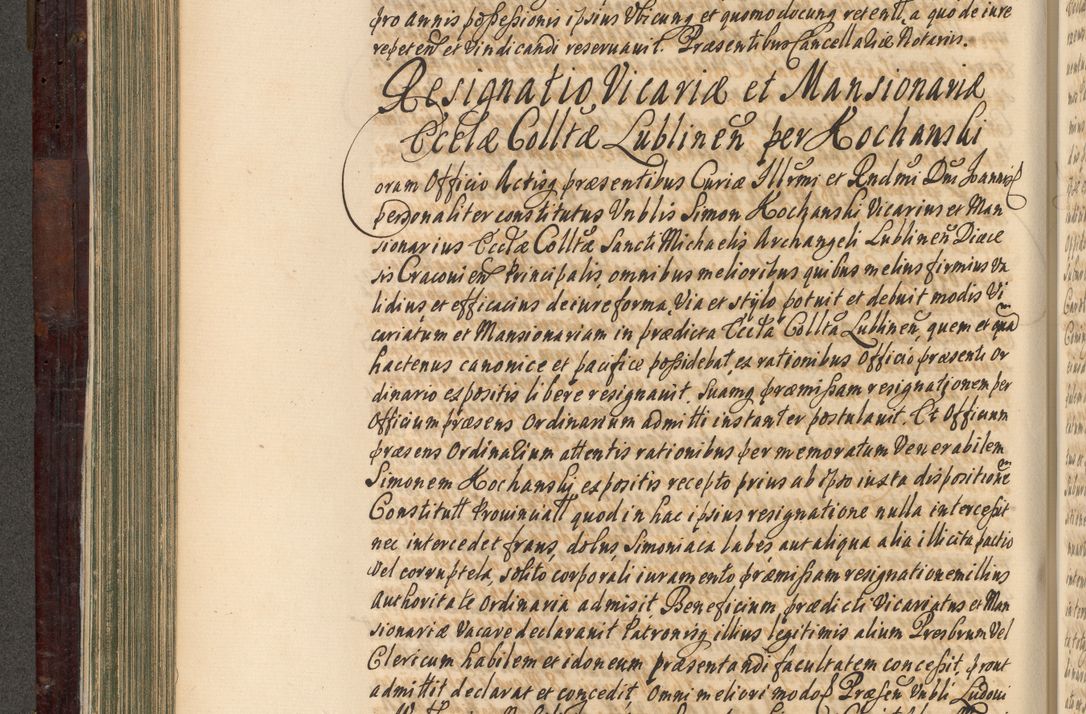 pro annis possessionis ipsius Vbicunq et quomodocunq retentt. a quo de iure
repeten et vindicandi reseruauit. Præsentibus Cancellariæ Notariis.
Resignatio Vicariæ et Mansionariæ
Ecctæ Colltæ Lublinen per Kochanski
oram Officio Actisq præsentibus Curiæ Illrmi et Rndmi Dni Joannis
personaliter constitutus Vnblis Simon Kochanski Vicarius et Man
sionarius Ecctæ Colltæ Sancti Michaelis Archangeli Lublinen Diæce
sis Cracouien Principalis, omnibus melioribus quibus melius firmius Va
lidius et efficacius de iure forma, Via et stylo potuit et debuit modis Vi
cariatum et Mansionariam in prædicta Eccta Collta Lublinen, quem et qua
hactenus canonice et pacifice possidebat ex rationibus Officio præsenti Or
dinario expositis libere resignauit, suamq præmissam resignationem per
Officium præsens Ordinarium admitti instanter postulauit. Et Officium
præsens Ordinarium attentis rationibus per memoratum Venerabilem
Simonem Kochanski expositis recepto prius ab ipso iuxta dispositione
Constitutt Prouinciatt quod in hac ipsius resignatione nulla intercessit
nec intercedet fraus, dolus, Simoniaca labes aut aliqua alia illicita pactio
Vel corruptela, solito corporali iuramento præmissam resignationem illius
Authoritate Ordinaria admisit, Beneficium prædicti Vicariatus et Man
sionariæ Vacare declarauit Patronisq illius legitimis alium Presbrum Vel
Clericum habilem et idoneum præsentandi facultatem concessit, prout
admittit declarat et concedit omni meliori modo Præsen Vnbli Ludoui